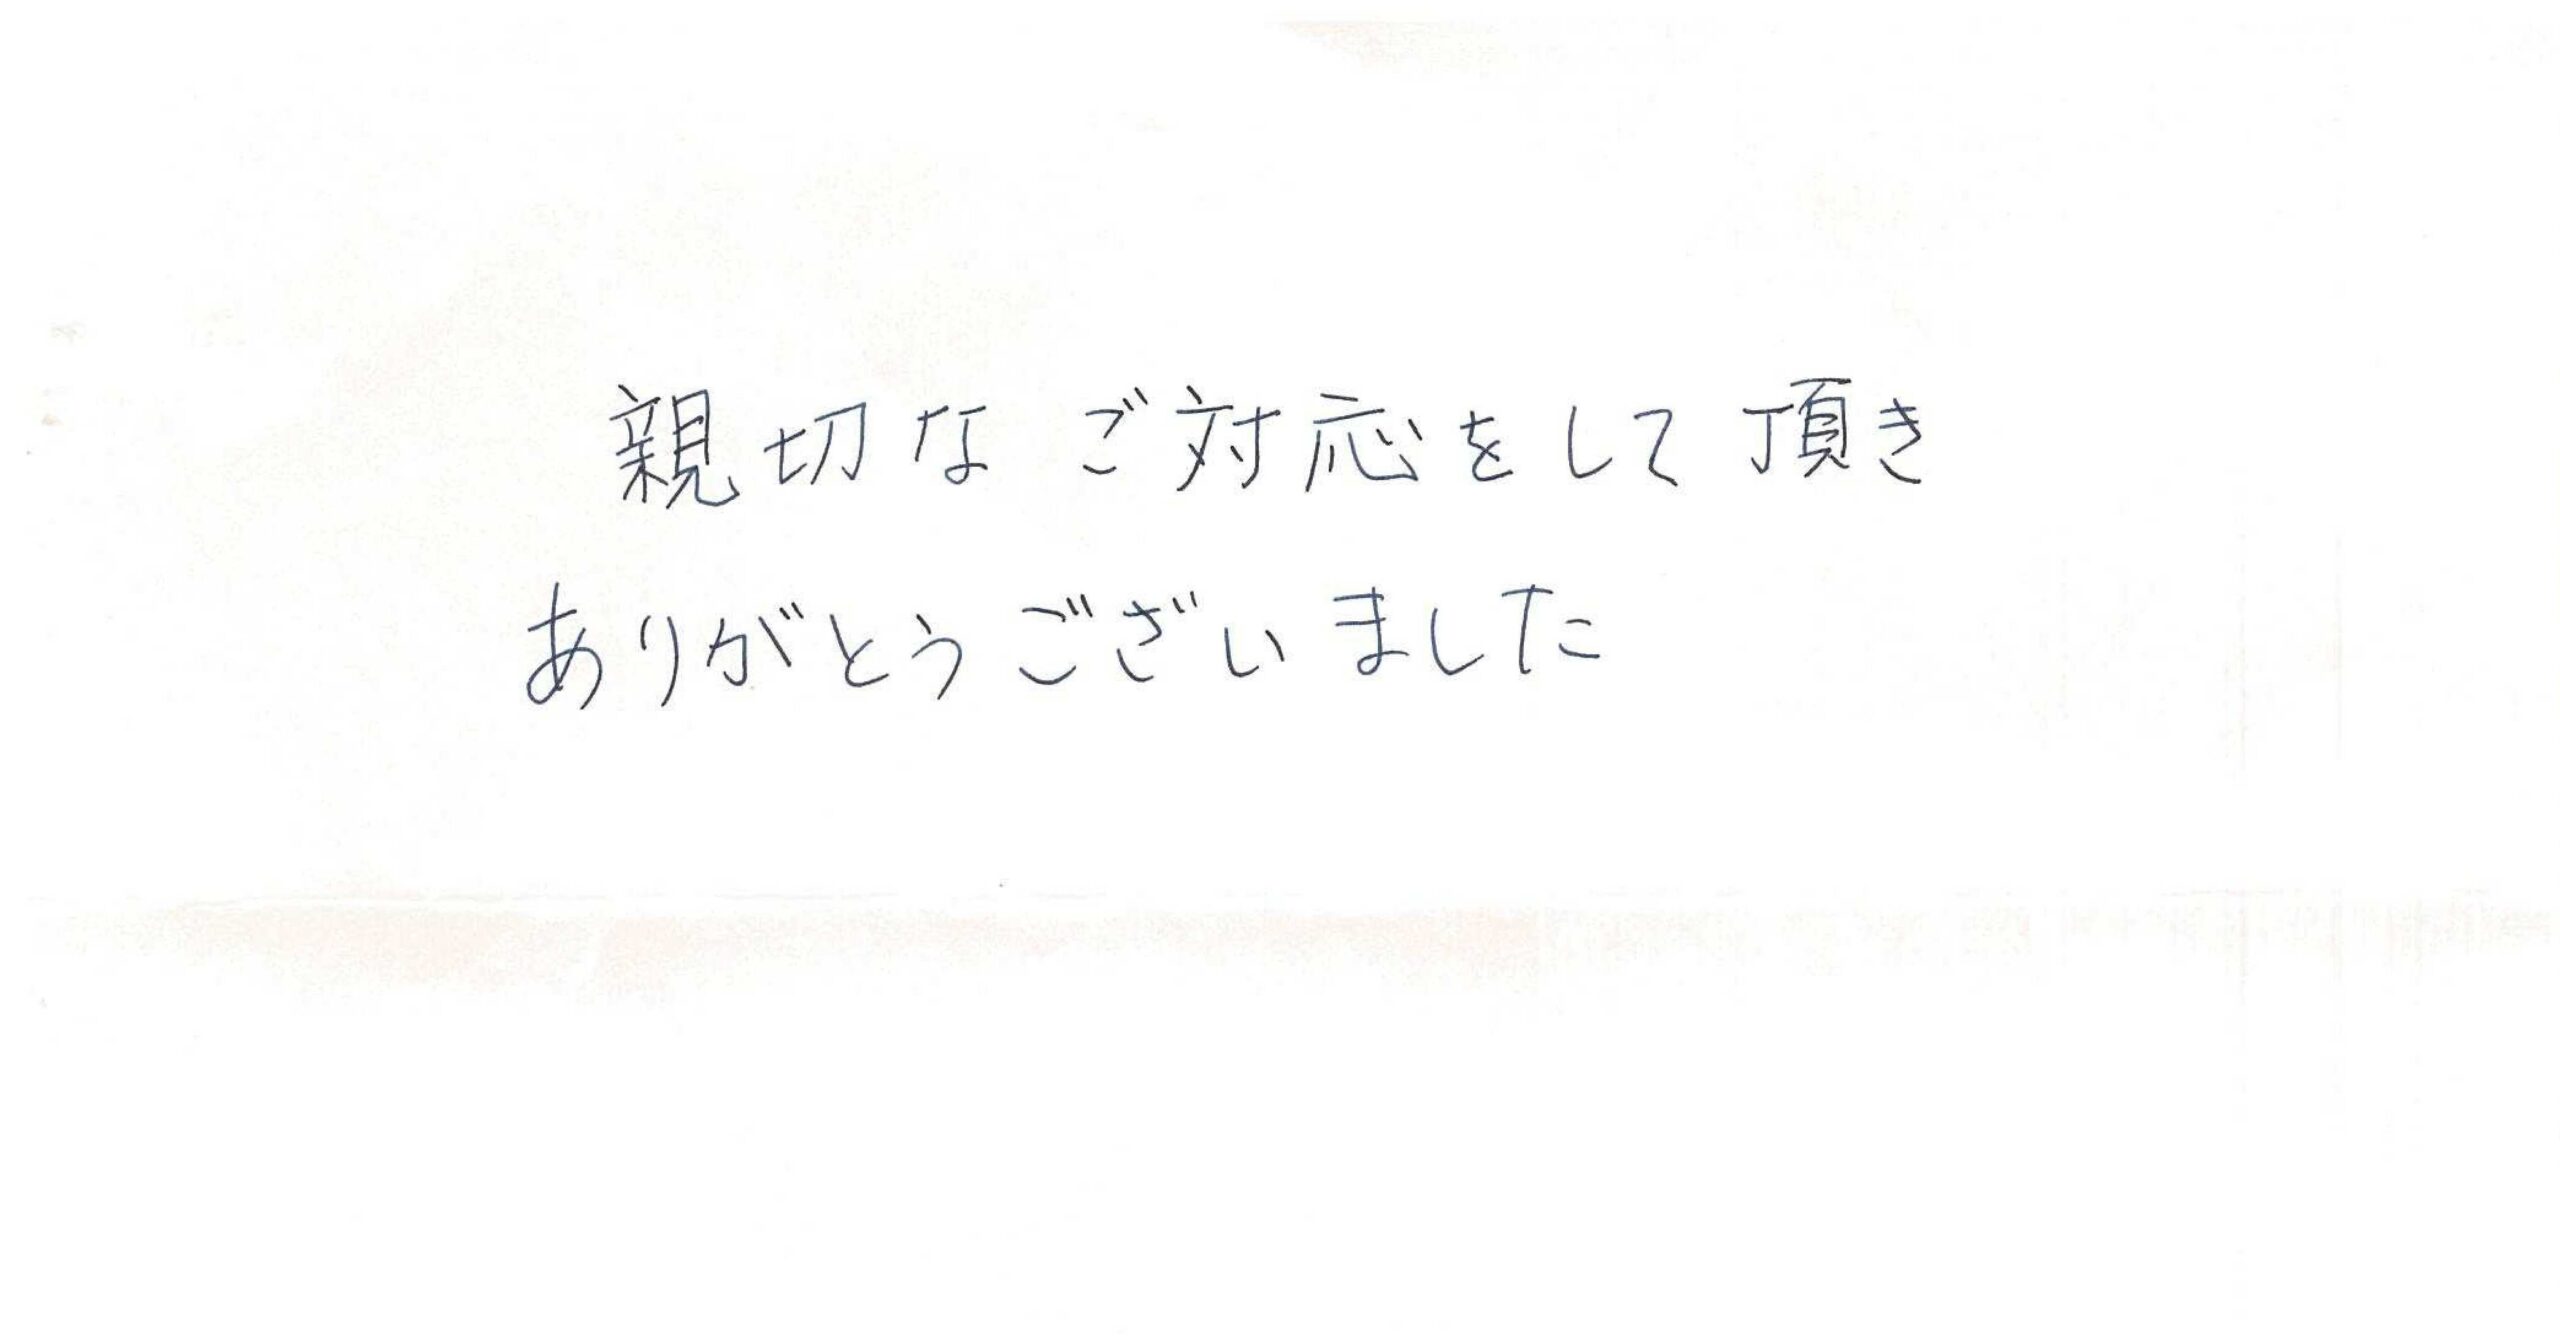 親切なご対応をして頂き
ありがとうございました